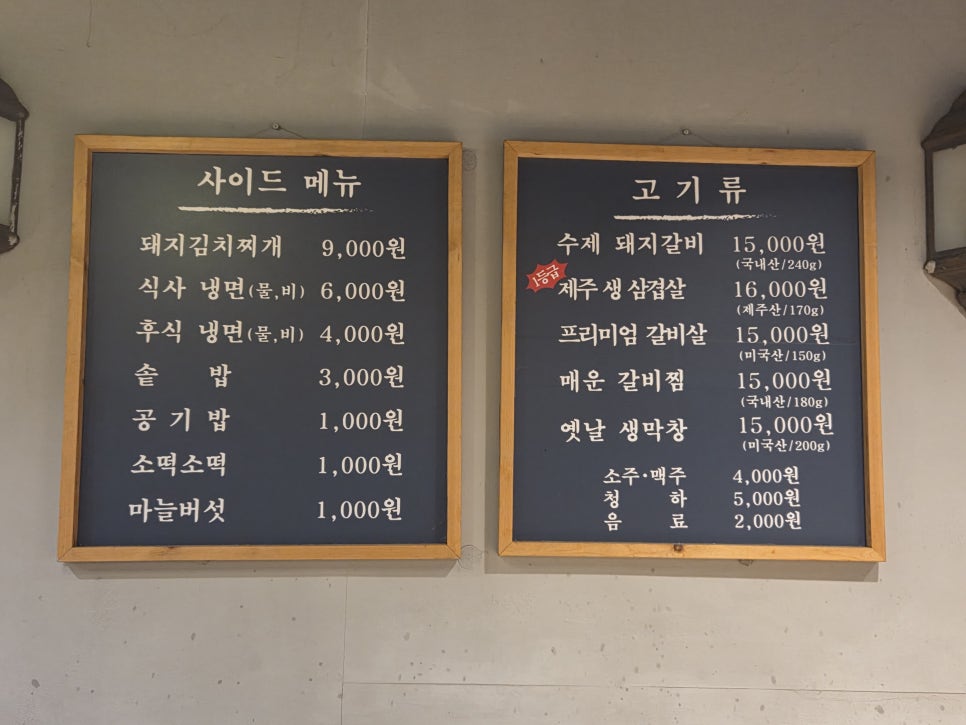 사이드 메뉴
돼지김치찌개 9,000원
식사 냉면(물,비) 6,000원
후식 냉면(물,비) 4,000원
솥 밥 3,000원
공 기 밥 1,000원
소떡소떡 1,000원
마늘버섯 1,000원
고 기 류
수제 돼지갈비 15,000원
(국내산/240g)
1등급
제주 생 삼겹살 16,000원
(제주산/170g)
프리미엄 갈비살 15,000원
(미국산/150g)
매운 갈비찜 15,000원
(국내산/180g)
옛날 생막창 15,000원
(미국산/200g)
소주·맥주 4,000원
청 하 5,000원
음 료 2,000원